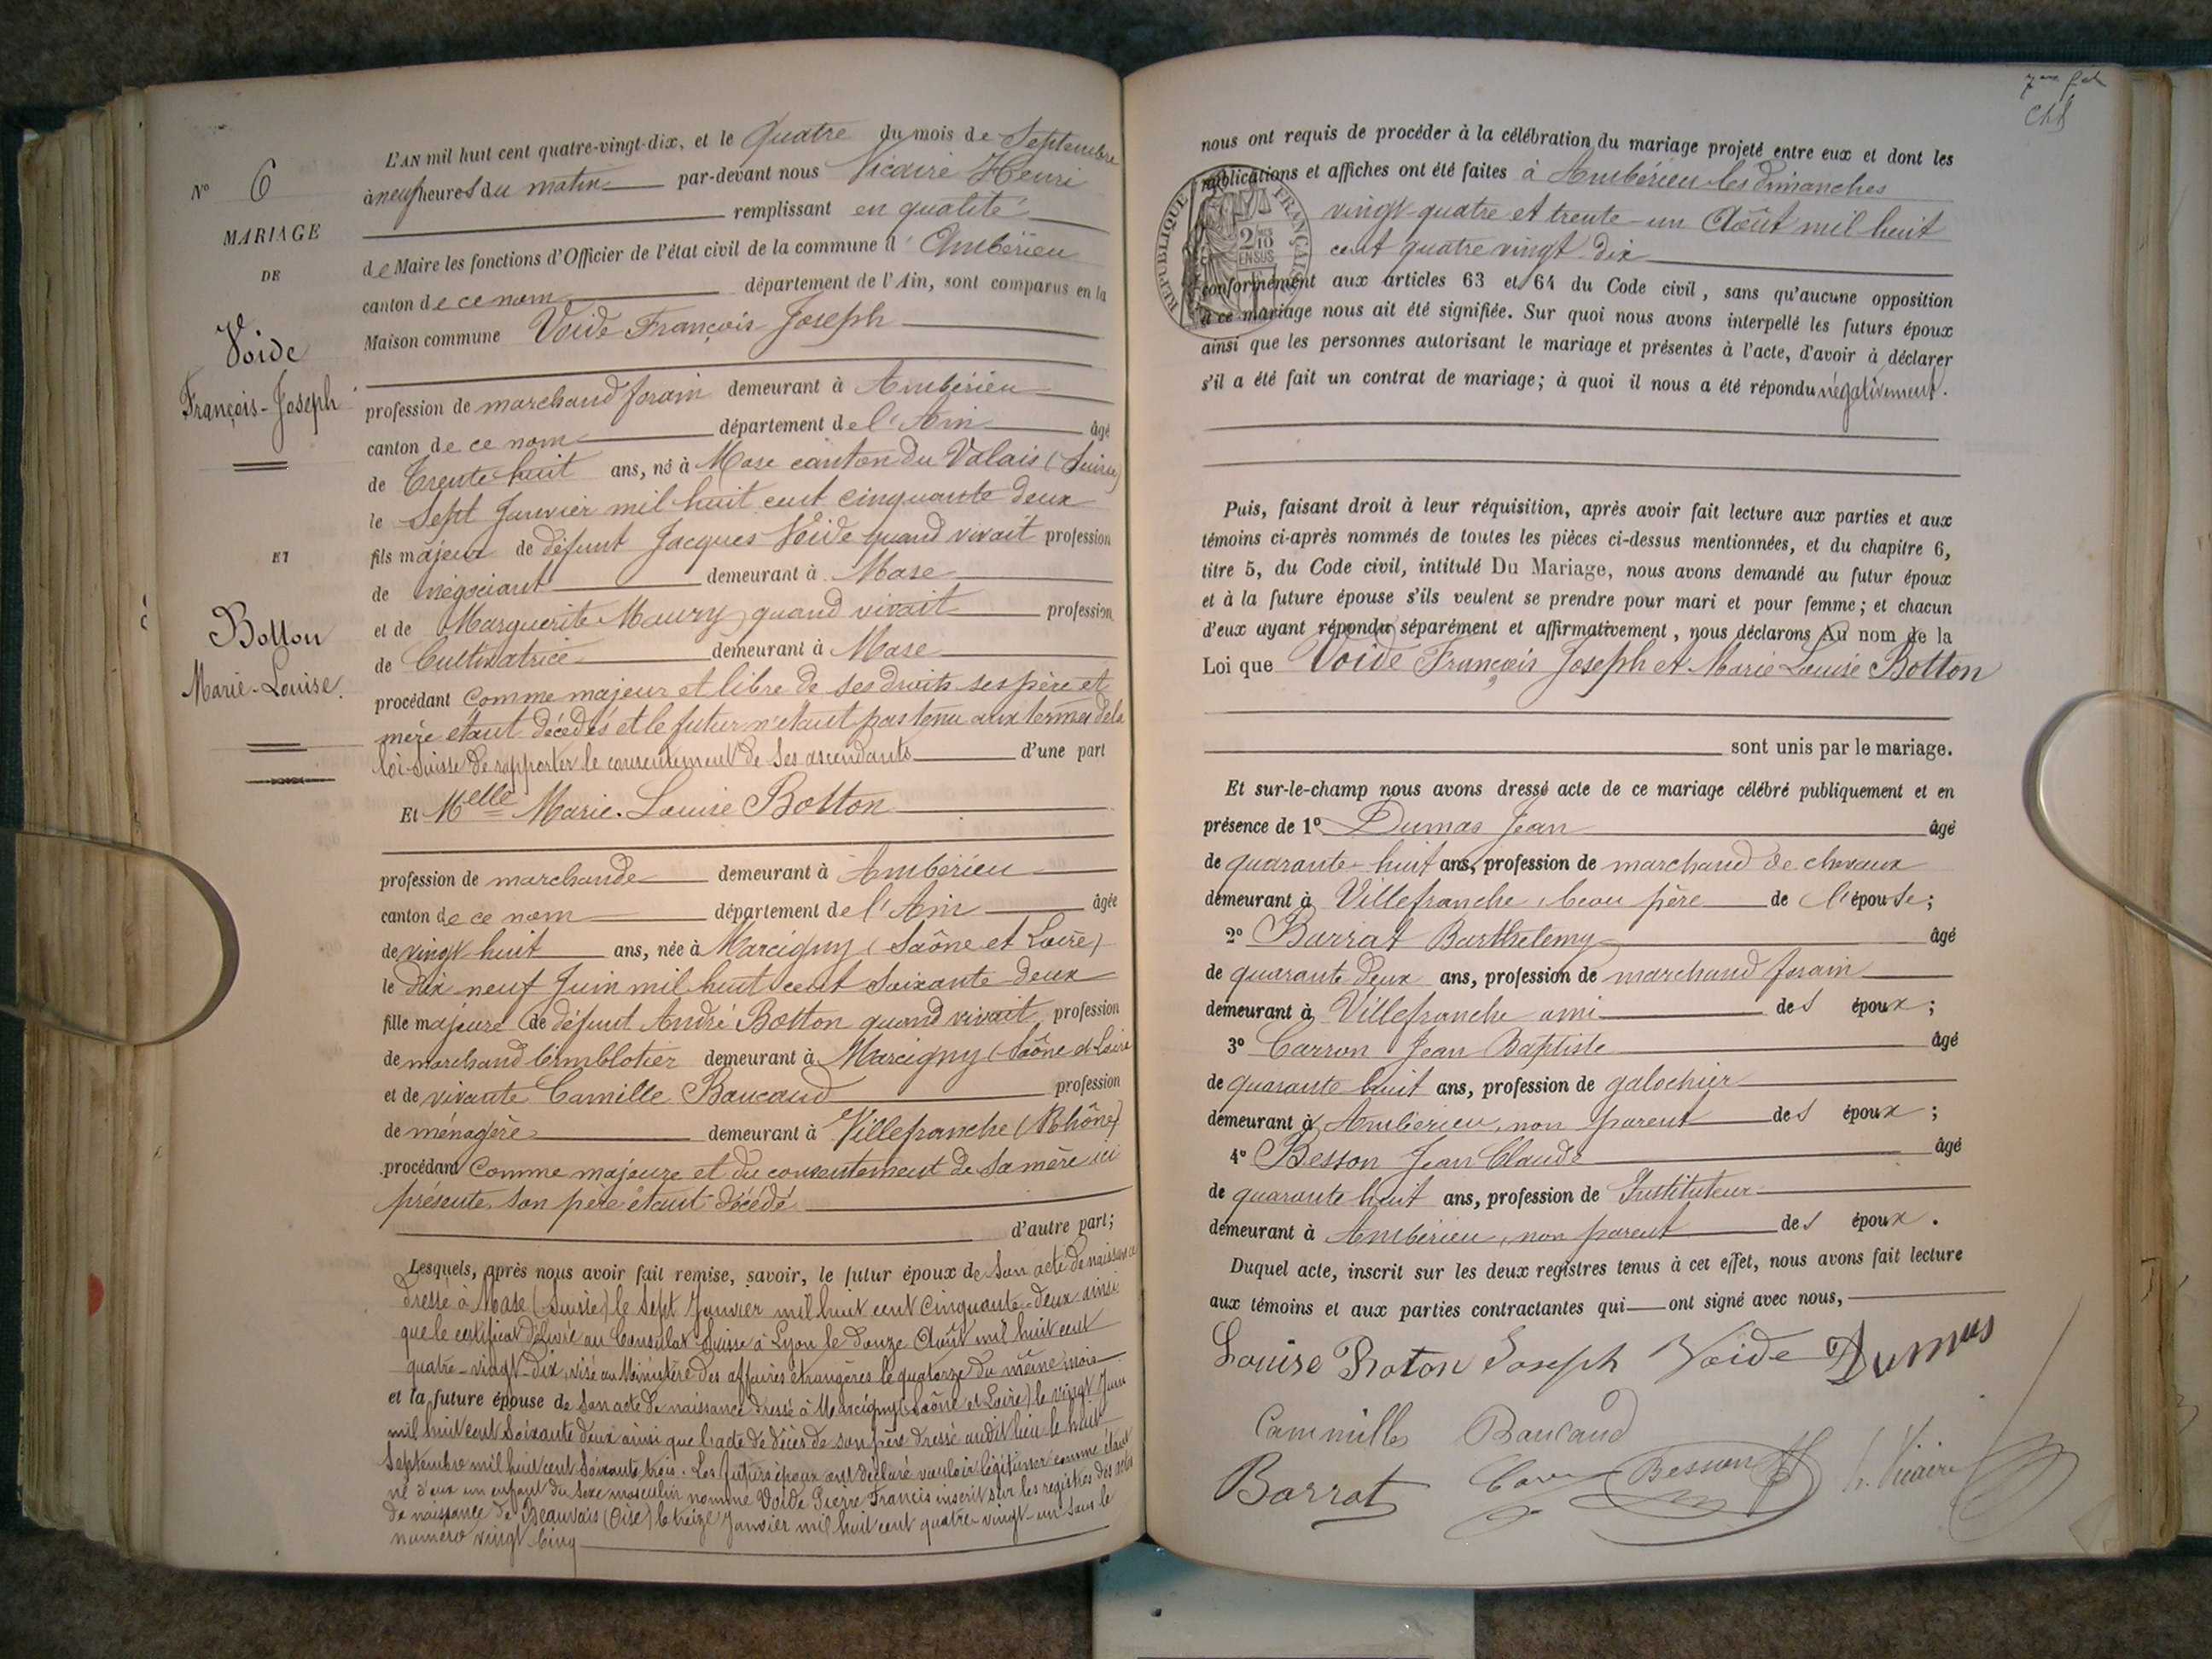 N° 6
MARIAGE
DE
Voide
François-Joseph
ET
Botton
Marie-Louise.
L'AN mil huit cent quatre-vingt-dix, et le Quatre du mois de Septembre
à neuf heures du matin par-devant nous Vicaire Henri
remplissant en qualité
de Maire les fonctions d'Officier de l'état civil de la commune d'Ambérieu
canton de ce nom département de l'Ain, sont comparus en la
Maison commune Voide François Joseph
profession de marchand forain demeurant à Ambérieu
canton de ce nom département de l'Ain âgé
de Trente huit ans, né à Mase canton du Valais (Suisse)
le Sept Janvier mil huit cent cinquante deux
fils majeur de défunt Jacques Voide quand vivait profession
de négociant demeurant à Mase
et de Marguerite Maury quand vivait profession
de Cultivatrice demeurant à Mase
procédant comme majeur et libre de ses droits ses père et
mère étant décédés et le futur n'étant pas tenu aux termes de la
loi Suisse de rapporter le consentement de ses ascendants d'une part
Et Melle Marie-Louise Botton
profession de marchande demeurant à Ambérieu
canton de ce nom département de l'Ain âgée
de vingt huit ans, née à Marcigny (Saône et Loire)
le dix neuf Juin mil huit cent soixante-deux
fille majeure de défunt André Botton quand vivait profession
de marchand bimblotier demeurant à Marcigny (Saône et Loire
et de vivante Camille Baucaud profession
de ménagère demeurant à Villefranche (Rhône)
procédant Comme majeure et du consentement de sa mère ici
présente, son père étant décédé
d'autre part;
Lesquels, après nous avoir fait remise, savoir, le futur époux de son acte de naissance
dressé à Mase (Suisse) le Sept Janvier mil huit cent cinquante-deux ainsi
que le certificat délivré au Consulat Suisse à Lyon le douze Août mil huit cent
quatre-vingt-dix, visé au Ministère des affaires étrangères le quatorze du même mois
et la future épouse de son acte de naissance dressé à Marcigny (Saône et Loire) le vingt Juin
mil huit cent soixante deux ainsi que l'acte de décès de son père dressé audit lieu le huit
Septembre mil huit cent soixante trois. Les futurs époux ont déclaré vouloir légitimer comme étant
né d'eux un enfant du sexe masculin nommé Voide Pierre Francis inscrit sur les registres des actes
de naissance de Beauvais (Oise) le treize Janvier mil huit cent quatre-vingt-un sous le
numéro vingt cinq
nous ont requis de procéder à la célébration du mariage projeté entre eux et dont les
publications et affiches ont été faites à Ambérieu les dimanches
vingt-quatre et trente-un Août mil huit
cent quatre vingt-dix
RÉPUBLIQUE FRANÇAISE
2
10
EN SUS
conformément aux articles 63 et 64 du Code civil, sans qu'aucune opposition
à ce mariage nous ait été signifiée. Sur quoi nous avons interpellé les futurs époux
ainsi que les personnes autorisant le mariage et présentes à l'acte, d'avoir à déclarer
s'il a été fait un contrat de mariage; à quoi il nous a été répondu négativement.
Puis, faisant droit à leur réquisition, après avoir fait lecture aux parties et aux
témoins ci-après nommés de toutes les pièces ci-dessus mentionnées, et du chapitre 6,
titre 5, du Code civil, intitulé Du Mariage, nous avons demandé au futur époux
et à la future épouse s'ils veulent se prendre pour mari et pour femme; et chacun
d'eux ayant répondu séparément et affirmativement, nous déclarons Au nom de la
Loi que Voide François Joseph et Marie Louise Botton
sont unis par le mariage.
Et sur-le-champ nous avons dressé acte de ce mariage célébré publiquement et en
présence de 1° Dumas Jean âgé
de quarante-huit ans, profession de marchand de chevaux
demeurant à Villefranche, beau père de l'épouse;
2° Barrat Barthelemy âgé
de quarante deux ans, profession de marchand forain
demeurant à Villefranche ami des époux;
3° Carron Jean Baptiste âgé
de quarante huit ans, profession de galochier
demeurant à Ambérieu, non parent des époux;
4° Besson Jean Claude âgé
de quarante huit ans, profession de Instituteur
demeurant à Ambérieu, non parent des époux.
Duquel acte, inscrit sur les deux registres tenus à cet effet, nous avons fait lecture
aux témoins et aux parties contractantes qui ont signé avec nous,
Louise Boton Joseph Voide Dumas
Cammille Baucaud
Barrat Besson h. Vicaire